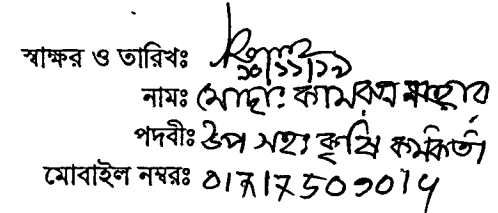 স্বাক্ষর ও তারিখঃ ১০/১১/১৯
নামঃ মোছাঃ কামরুন নাহার
পদবীঃ উপ সহঃ কৃষি কর্মকর্তা
মোবাইল নম্বরঃ 01717509014